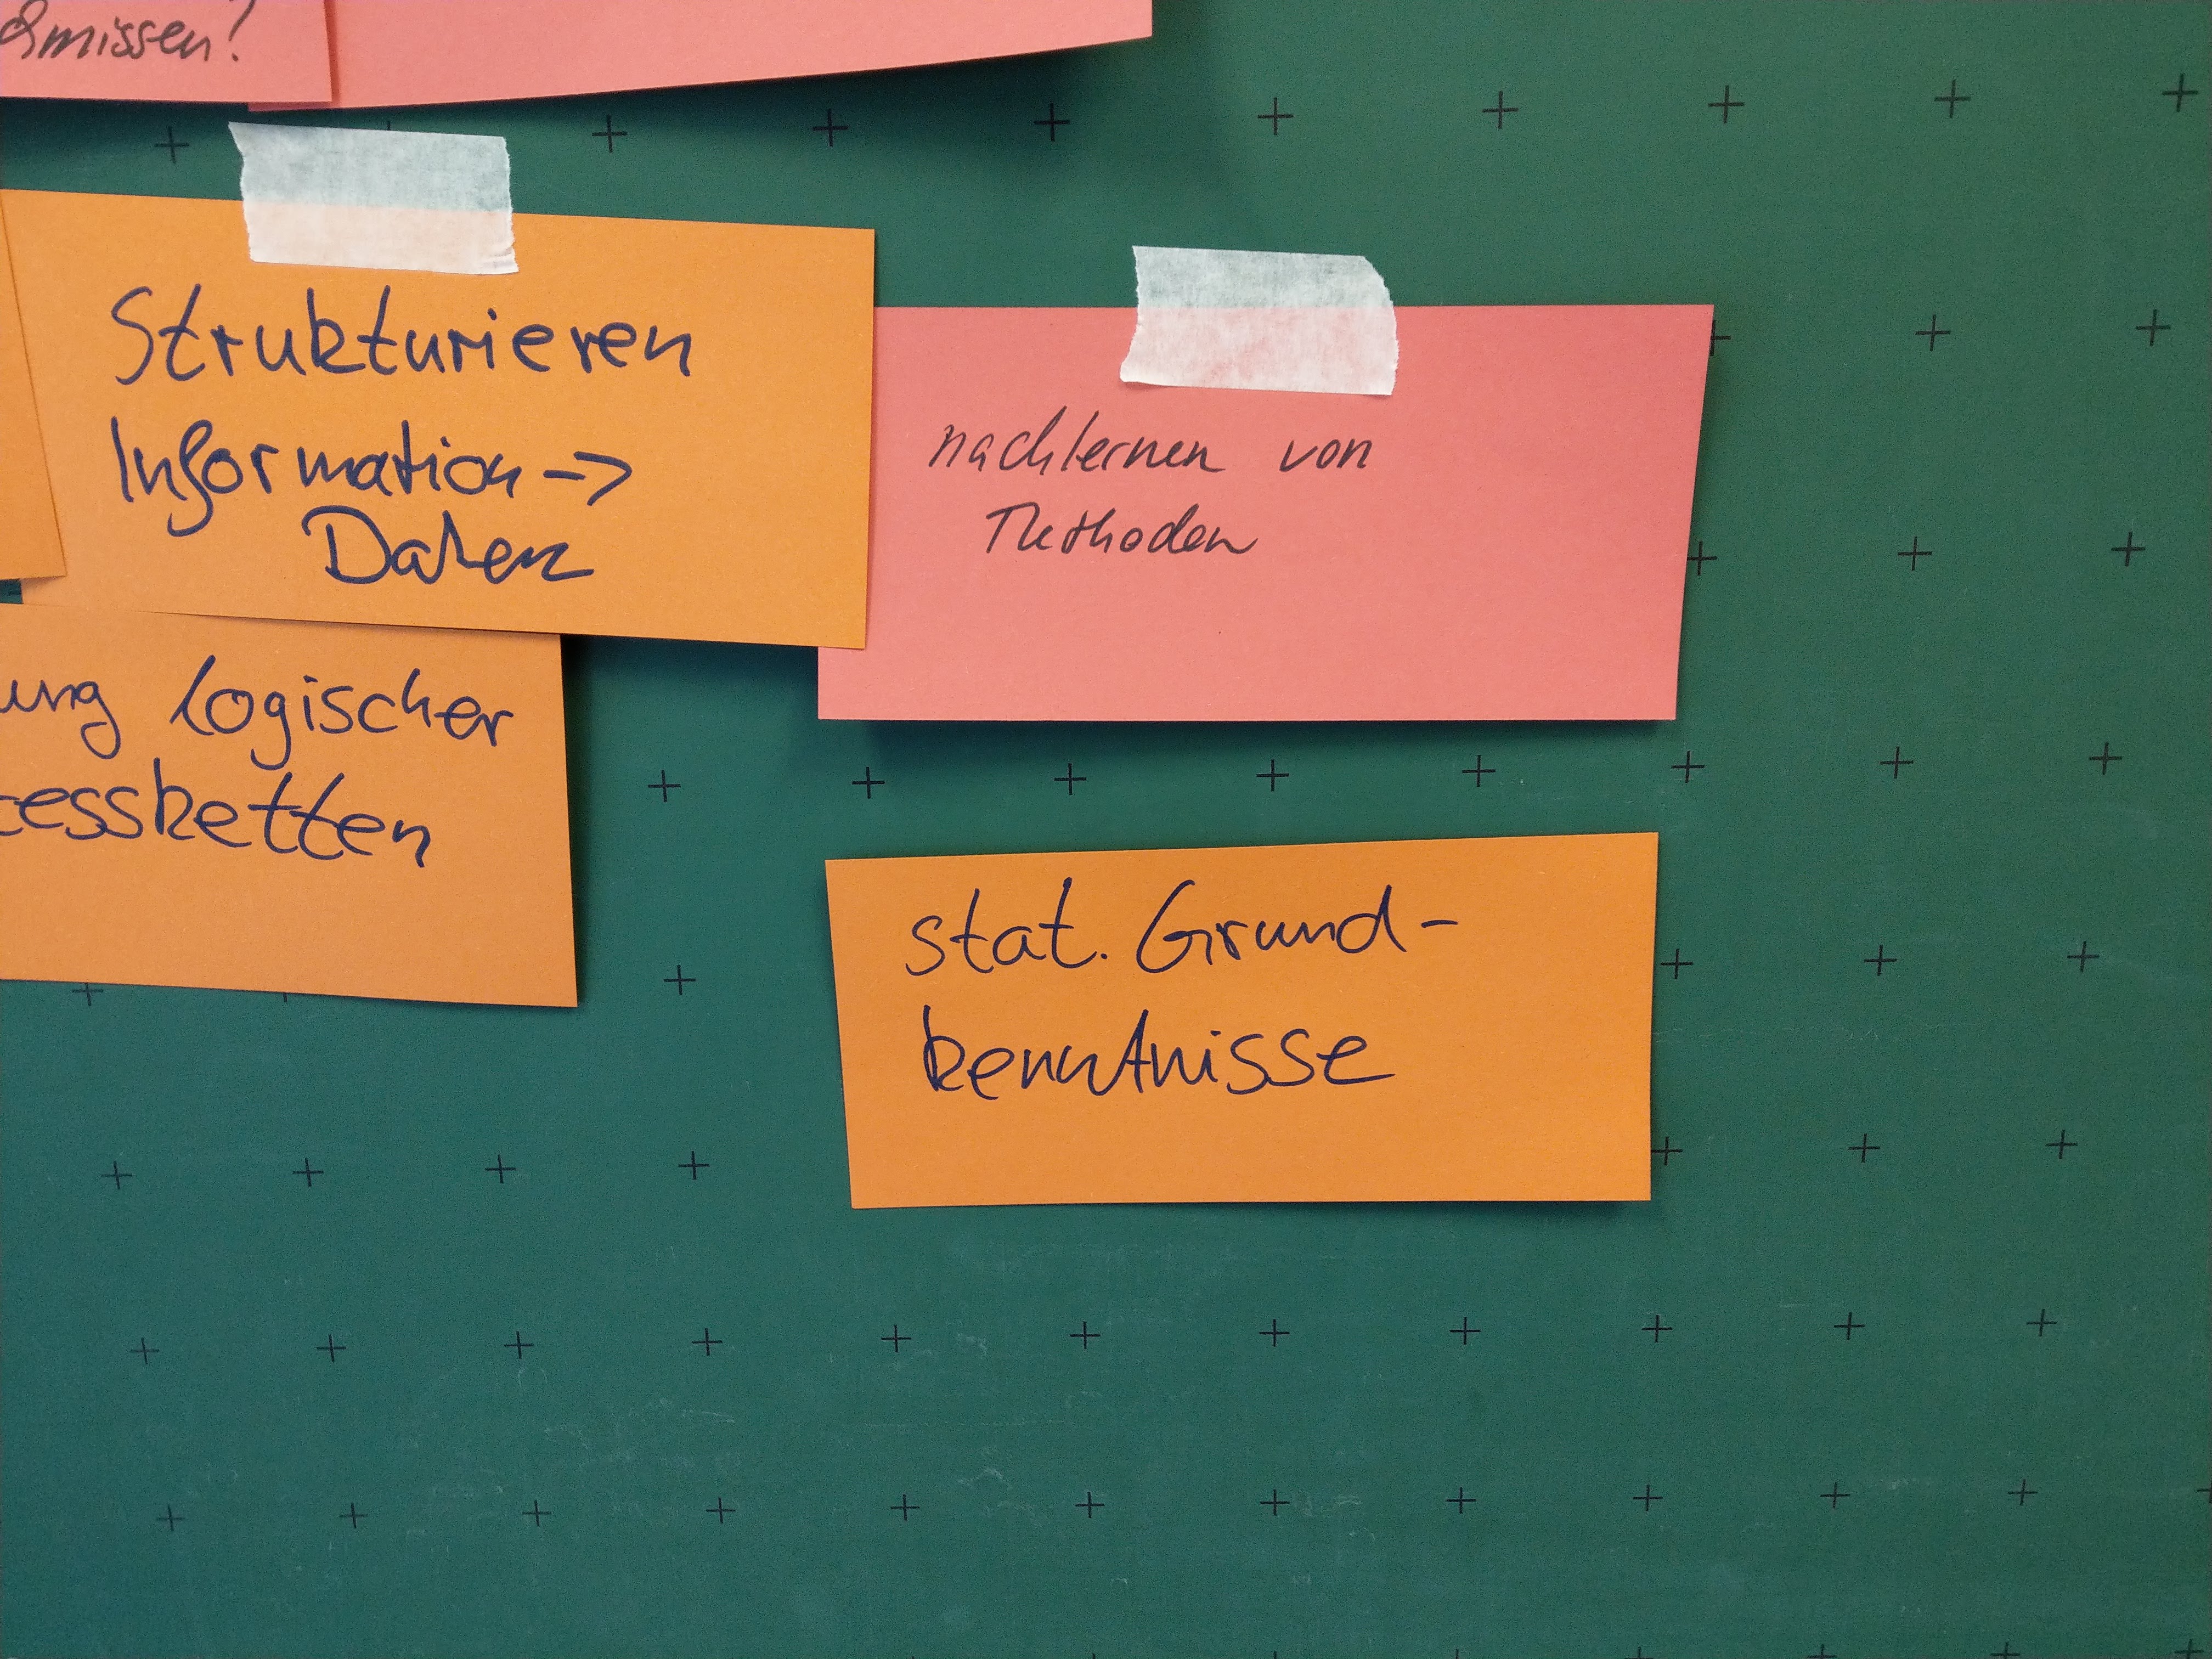 Strukturieren
Information ->
Daten
nachlernen von
Methoden
ung logischer
zessketten
stat. Grund-
kenntnisse